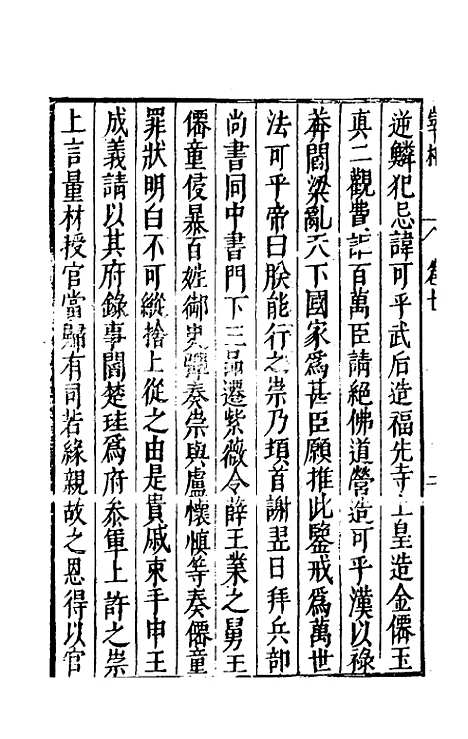 逆鱗犯忌諱可乎武后造福先寺上皇造金僊玉
真二觀費詎百萬臣請絕佛道營造可乎漢以祿
莽閻梁亂天下國家為甚臣願推此鑒戒為萬世
法可乎帝曰朕能行之崇乃頊首謝翌日拜兵部
尚書同中書門下三品遷紫微令薛王業之舅王
僊童侵暴百姓御史彈奏崇與盧懷慎等奏僊童
罪狀明白不可縱捨上從之由是貴戚束手申王
成義請以其府錄事閻楚珪為府叅軍上許之崇
上言量材授官當歸有司若緣親故之恩得以官
卷七